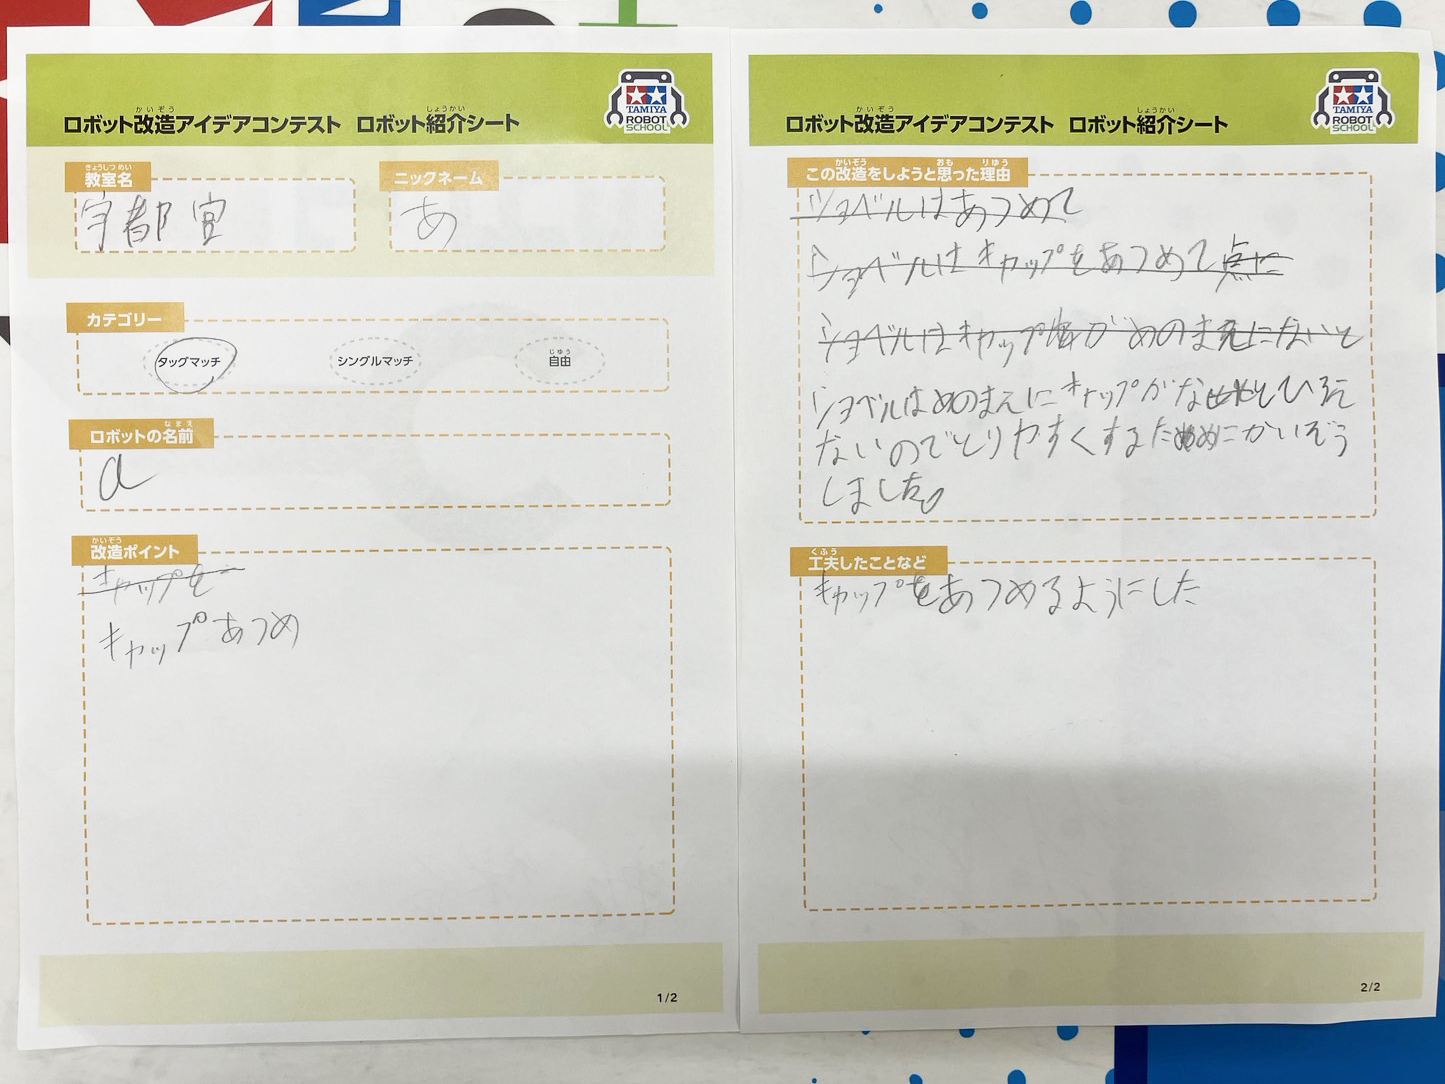 かいぞう しょうかい
ロボット改造アイデアコンテスト ロボット紹介シート
TAMIYA
ROBOT
SCHOOL
きょうしつ めい
教室名
宇都宮
ニックネーム
あ
カテゴリー
タッグマッチ
シングルマッチ
じゆう
自由
なまえ
ロボットの名前
a
かいぞう
改造ポイント
キャップを
キャップあつめ
1/2
かいぞう しょうかい
ロボット改造アイデアコンテスト ロボット紹介シート
TAMIYA
ROBOT
SCHOOL
かいぞう おも りゆう
この改造をしようと思った理由
ショベルはあつめて
ショベルはキャップをあつめて点に
ショベルはキャップがめのまえにないと
ショベルはめのまえにキャップがないとひろえ
ないのでとりやすくするためにかいぞう
しました。
くふう
工夫したことなど
キャップをあつめるようにした
2/2